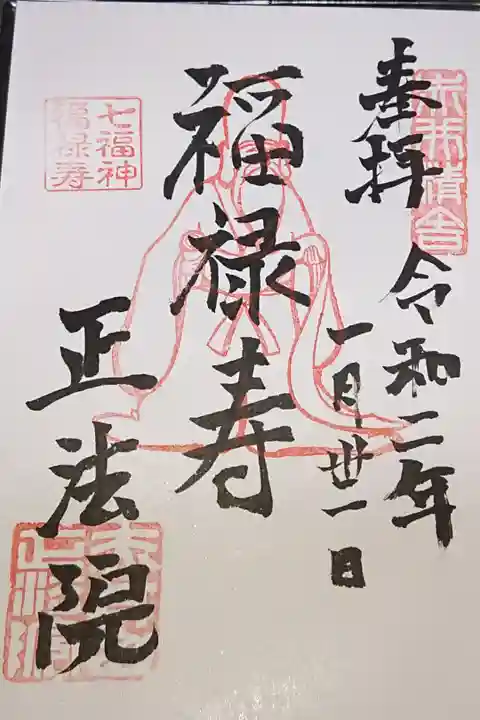 奉拝
令和二年
一月卅一日
福禄寿
七福神
福禄寿
正法院